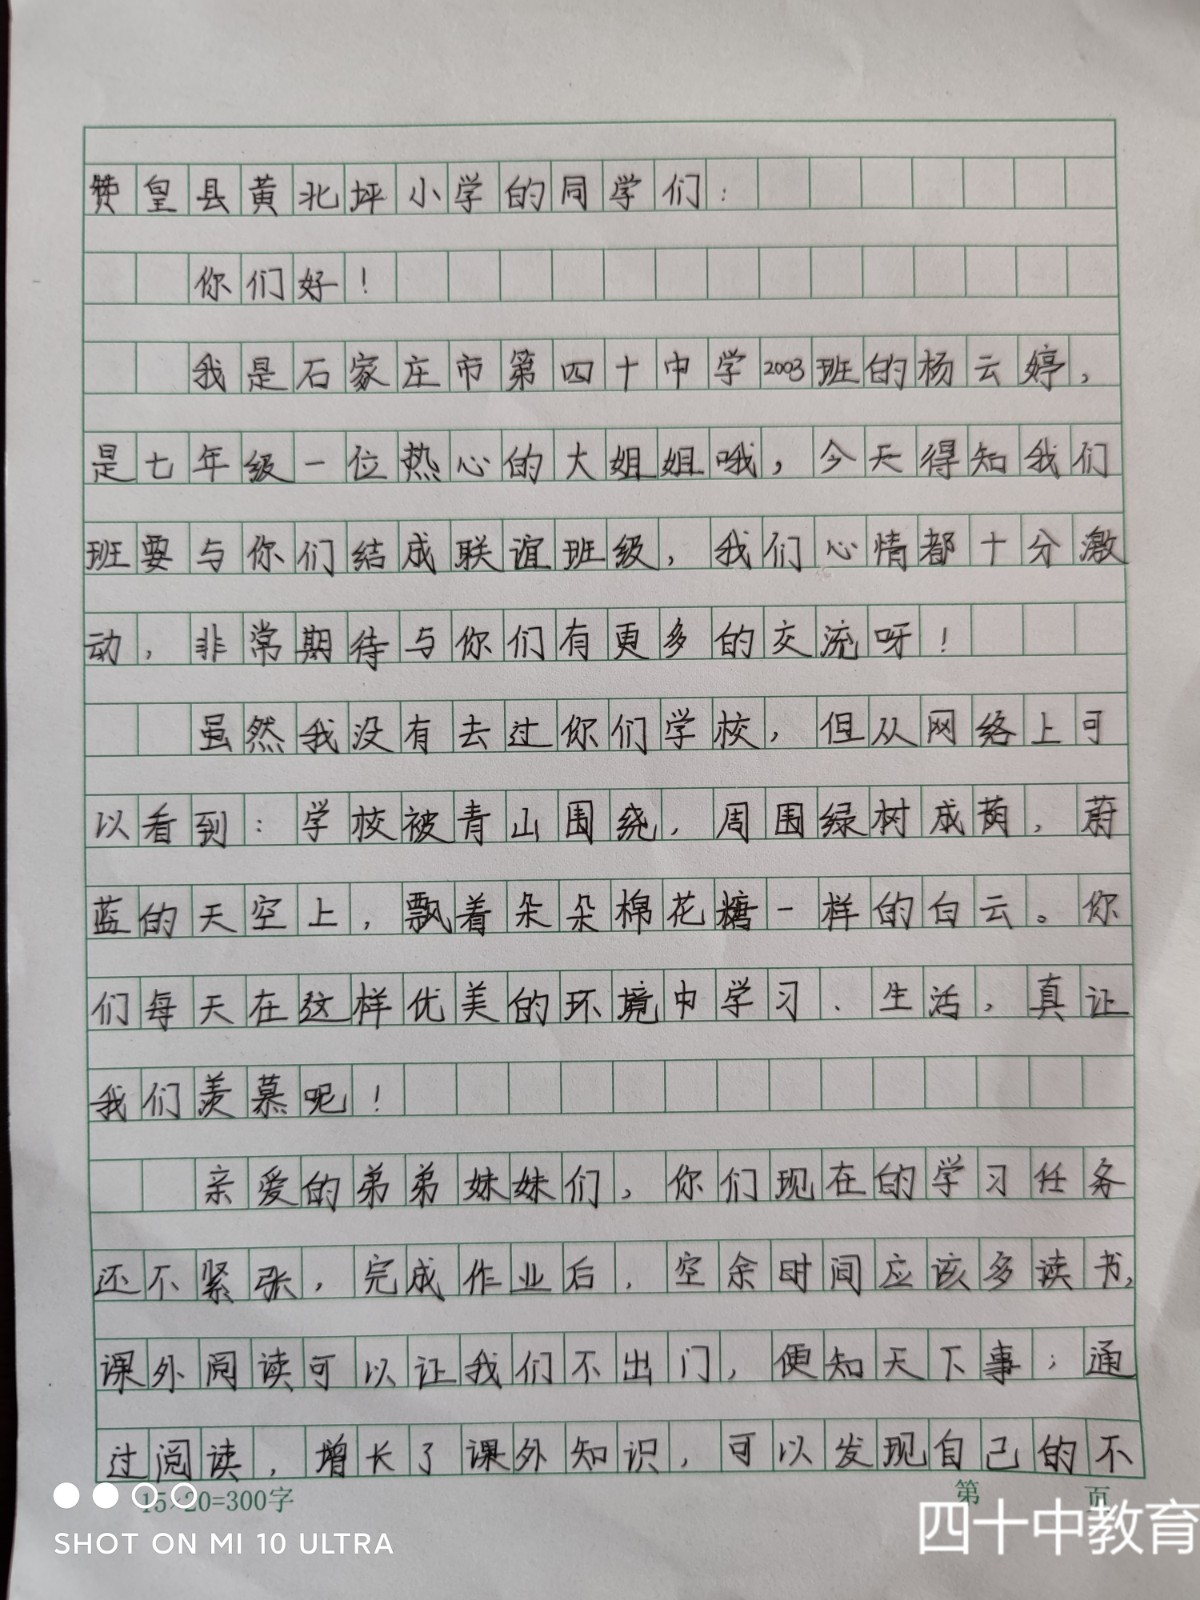 赞皇县黄北坪小学的同学们：
你们好！
我是石家庄市第四十中学2003班的杨云婷，
是七年级一位热心的大姐姐哦，今天得知我们
班要与你们结成联谊班级，我们心情都十分激
动，非常期待与你们有更多的交流呀！
虽然我没有去过你们学校，但从网络上可
以看到：学校被青山围绕，周围绿树成荫，蔚
蓝的天空上，飘着朵朵棉花糖一样的白云。你
们每天在这样优美的环境中学习、生活，真让
我们羡慕呢！
亲爱的弟弟妹妹们，你们现在的学习任务
还不紧张，完成作业后，空余时间应该多读书，
课外阅读可以让我们不出门，便知天下事；通
过阅读，增长了课外知识，可以发现自己的不
15×20=300字
第 页
SHOT ON MI 10 ULTRA
四十中教育